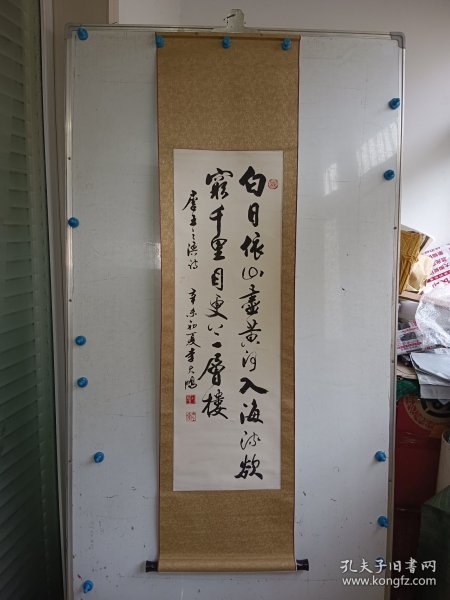 白日依山尽黄河入海流欲
窮千里目更上一層樓
唐王之渙詩 辛未初夏李大鴻
孔夫子旧书网
www.kongfz.com